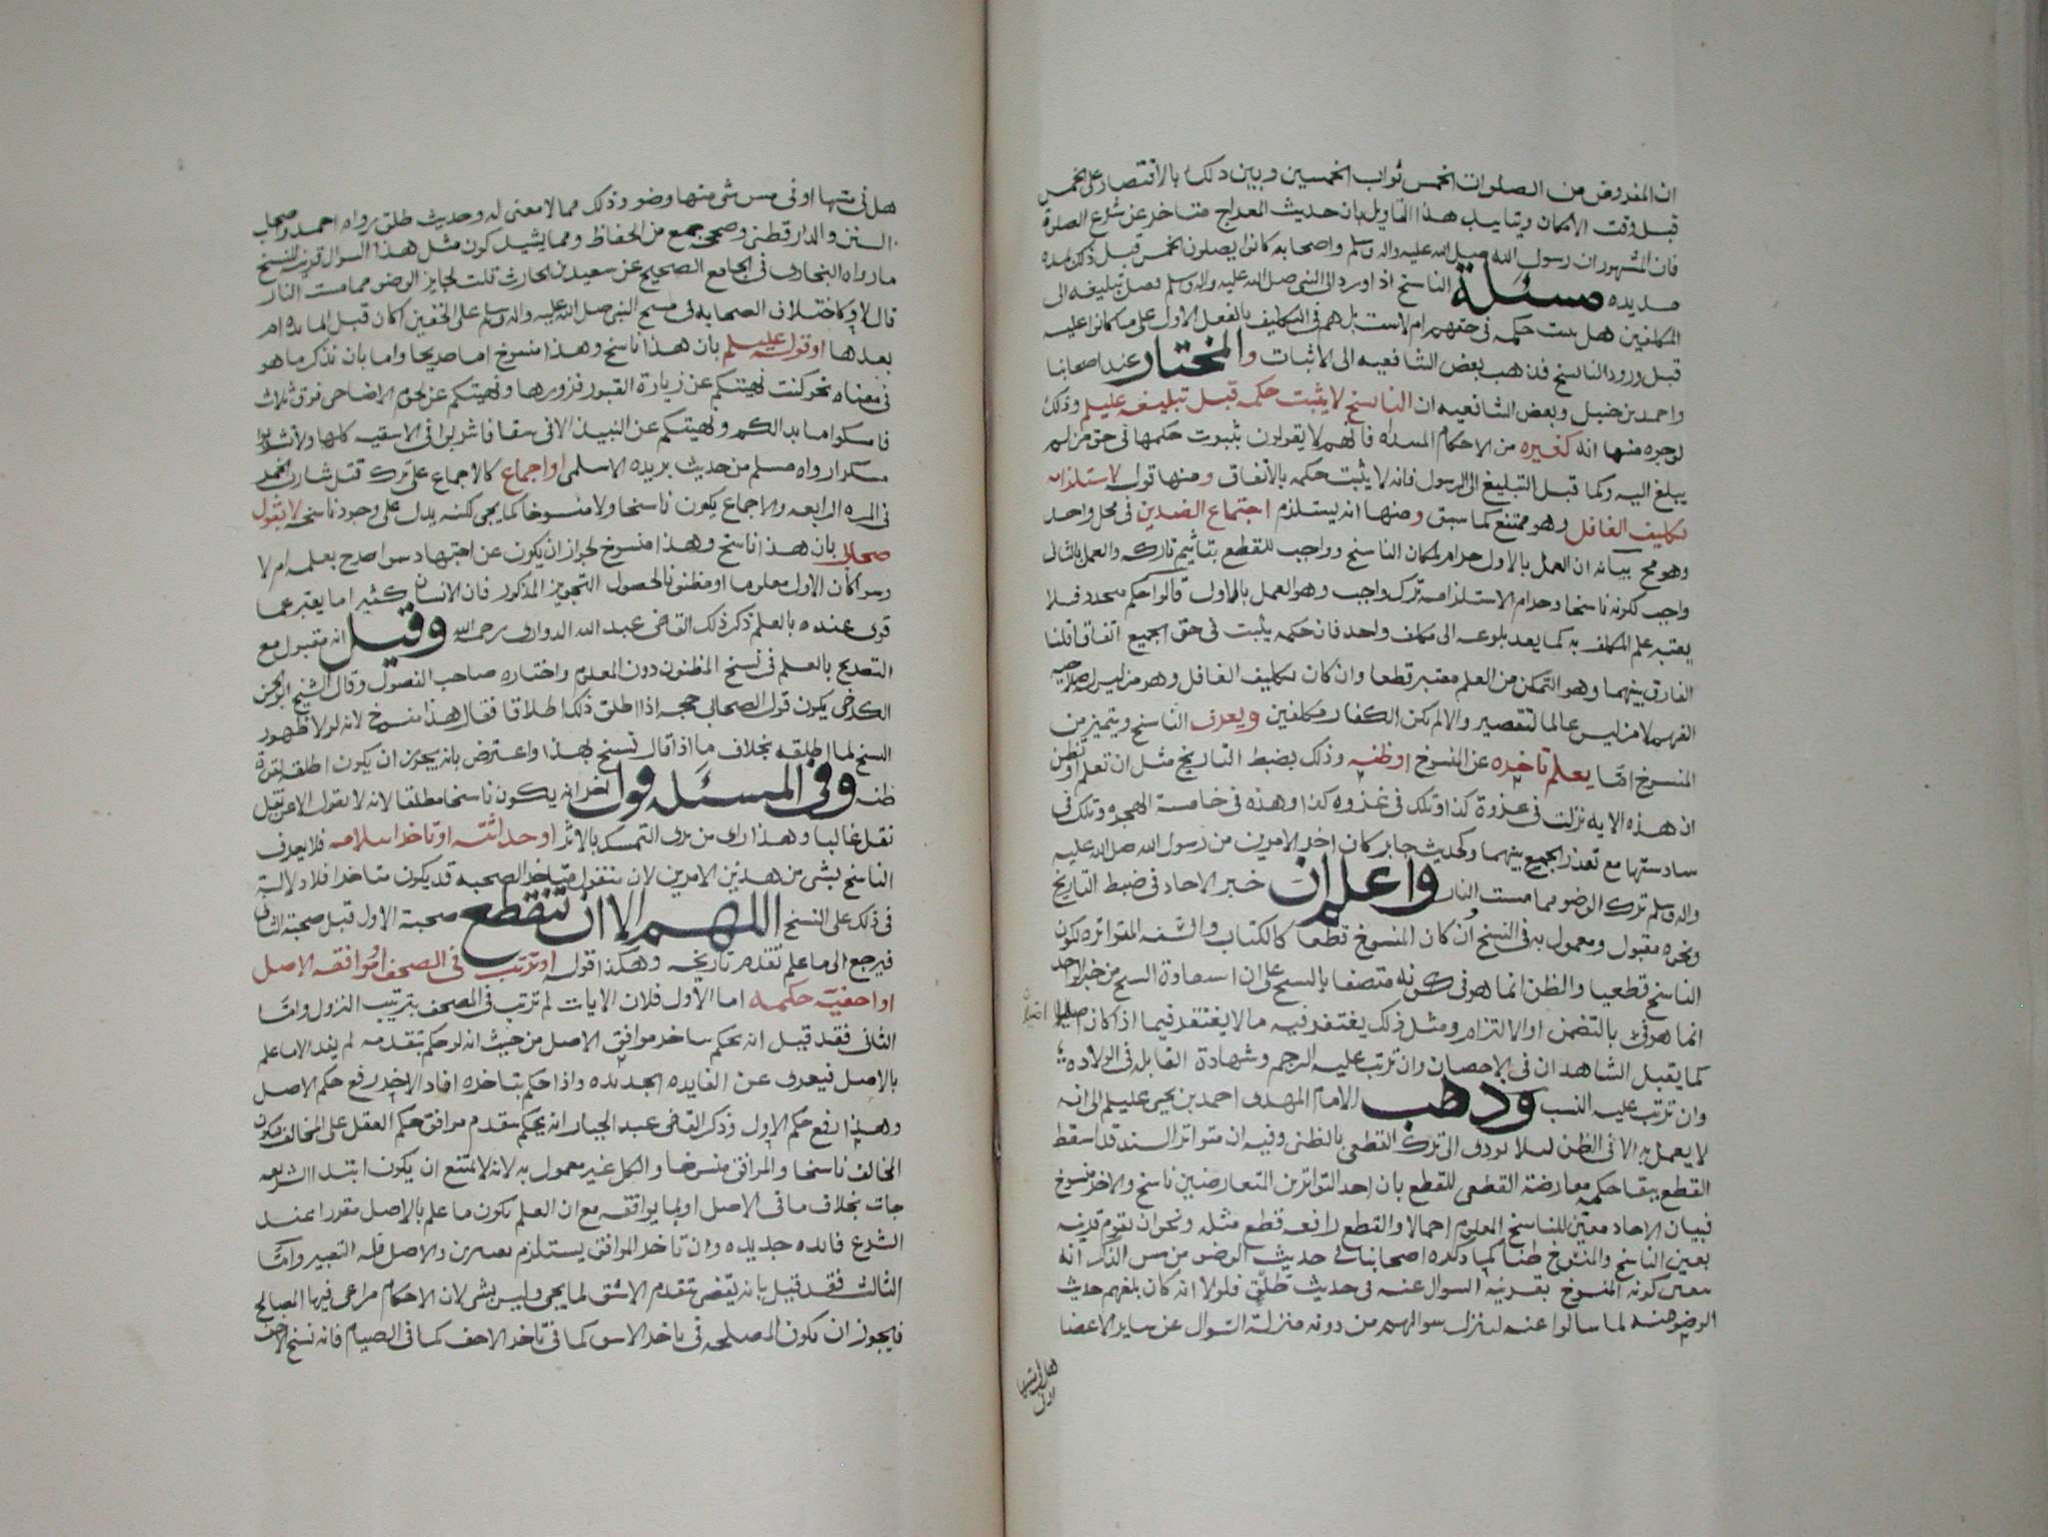 ان المفروض من الصلوات الخمس ثواب الخمسين وبين ذلك بالاقتصار على الخمس
قبل وقت الامكان وتاييد هذا التاويل بان حديث المعراج متاخر عن شرع الصلوة
فان المشهور ان رسول الله صلى الله عليه واله وسلم واصحابه كانوا يصلون الخمس قبل ذلك بمده
مديده مسئلة الناسخ اذا ورد الى النبي صلى الله عليه واله وسلم قبل تبليغه الى
المكلفين هل يثبت حكمه في حقهم ام لا يثبت بل هم في التكليف بالفعل الاول على ما كانوا عليه
قبل ورود الناسخ فذهب بعض الشافعيه الى الاثبات والمختار عند اصحابنا
واحمد بن حنبل وبعض الشافعيه ان الناسخ لا يثبت حكمه قبل تبليغه عليلم وذلك
لوجوه منها انه كغيره من الاحكام المبتداه فانهم لا يقولون بثبوت حكمها في حق من لم
يبلغ اليه وكما قبل التبليغ الى الرسول فانه لا يثبت حكمه بالاتفاق ومنها قوله لاستلزامه
تكليف الغافل وهو ممتنع كما سبق ومنها انه يستلزم اجتماع الضدين في محل واحد
وهو مح بيانه ان العمل بالاول حرام لمكان الناسخ وواجب للقطع بتاثيم تاركه والعمل بالثاني
واجب لكونه ناسخا وحرام لاستلزامه ترك واجب وهو العمل بالاول قالوا حكم متجدد فلا
يعتبر علم المكلف به كما بعد بلوغه الى مكلف واحد فان حكمه يثبت في حق الجميع اتفاقا قلنا
الفارق بينهما وهو التمكن من العلم معتبر قطعا وان كان تكليف الغافل وهو من ليس له صلاحيه
الفهم لا من ليس عالما لتقصير والا لم يكن الكفار مكلفين ويعرف الناسخ ويتميز من
المنسوخ اما بعلم تاخره عن المنسوخ او ظنه وذلك بضبط التاريخ مثل ان تعلم او تظن
ان هذه الايه نزلت في غزوة كذا وتلك في غزوه كذا وهذه في خامسة الهجره وتلك في
سادستها مع تعذر الجمع بينهما وكحديث جابر كان اخر الامرين من رسول الله صلى الله عليه
واله وسلم ترك الوضو مما مست النار واعلم ان خبر الاحاد في ضبط التاريخ
ونحوه مقبول ومعمول به في النسخ وان كان المنسوخ قطعا كالكتاب والسنه المتواتره لكون
الناسخ قطعيا والظن انما هو في كونه متصفا بالنسخ على ان استفادة النسخ من خبر الواحد
انما هو في بالتضمن او الالتزام ومثل ذلك يغتفر فيه ما لا يغتفر فيما اذا كان اصليا
كما يقبل الشاهدان في الاحصان وان ترتب عليه الرجم وشهادة القابله في الولاده
وان ترتب عليه النسب وذهب الامام المهدي احمد بن يحيى عليلم الى انه
لا يعمل به الا في الظن لئلا يودي الى ترك القطعي بالظني وفيه ان متواتر السند قد اسقط
القطع ببقا حكمه معارضة القطعي للقطع بان احد المتواترين المتعارضين ناسخ والاخر منسوخ
فبيان الاحاد معين للناسخ المعلوم اجمالا والقطع رافعه قطع مثله ونحو ان تقوم قرينه
بعين الناسخ والمنسوخ ظنا كما ذكره اصحابنا في حديث الوضو من مس الذكر انه
تعين كونه المنسوخ بقرينه السوال عنه في حديث طلق فلولا انه كان بلغهم حديث
الوضو منه لما سالوا عنه لتنزل سوالهم من دونه منزلة السوال عن ساير الاعضا
هل في مسها
او في
هل في مسها او في مس شي منها وضو وذلك مما لا معنى له وحديث طلق رواه احمد واصحاب
السنن والدارقطني وصححه جمع من الحفاظ ومما يشيد كون مثل هذا السوال قرينه للنسخ
ما رواه البخاري في الجامع الصحيح عن سعيد بن الحارث قلت لجابر الوضو مما مست النار
قال لا وكاختلاف الصحابه في مسح النبي صلى الله عليه واله وسلم على الخفين اكان قبل المائده ام
بعدها او قوله عليلم بان هذا ناسخ وهذا منسوخ اما صريحا واما بان يذكر ما هو
في معناه نحو كنت نهيتكم عن زيارة القبور فزوروها ونهيتكم عن لحوم الاضاحي فوق ثلاث
فامسكوا ما بدا لكم ونهيتكم عن النبيذ الا في سقا فاشربوا في الاسقيه كلها ولا تشربوا
مسكرا رواه مسلم من حديث بريده الاسلمي او اجماع كالاجماع على ترك قتل شارب الخمر
في المره الرابعه والاجماع يكون ناسخا ولا منسوخا كما يجي لكنه يدل على وجود ناسخ لا بقول
صحابي بان هذا ناسخ وهذا منسوخ لجواز ان يكون عن اجتهاد سوا صرح بعلمه ام لا
وسوا كان الاول معلوما او مظنونا لحصول التجويز المذكور فان الانسان كثيرا ما يعبر عما
قوي عنده بالعلم ذكر ذلك القاضي عبد الله الدواري رحمه الله وقيل انه مقبول مع
التصريح بالعلم في نسخ المظنون دون المعلوم واختاره صاحب الفصول وقال الشيخ ابو الحسن
الكرخي يكون قول الصحابي حجه اذا اطلق ذلك اطلاقا فقال هذا منسوخ لانه لولا ظهور
النسخ لما اطلقه بخلاف ما اذا قال نسخ بهذا واعترض بانه يجوز ان يكون اطلقه لقوة
ظنه وفي المسئله قول اخر انه يكون ناسخا مطلقا لانه لا يقول الا عن نقل
نقل غالبا وهذا راي من يرى التمسك بالاثر او حداثته او تاخر اسلامه فلا يعرف
الناسخ بشي من هذين الامرين لان منقول متاخر الصحبه قد يكون متاخرا فلا دلالة
في ذلك على النسخ اللهم الا ان تنقطع صحبة الاول قبل صحبة الثاني
فيرجع الى ما علم تقدم تاريخه وهكذا قوله او ترتيب في الصحف او موافقه الاصل
او اخفية حكمه اما الاول فلان الايات لم ترتب في المصحف بترتيب النزول واما
الثاني فقد قيل انه يحكم بتاخر موافق الاصل من حيث انه لو حكم بتقدمه لم يفد الا ما علم
بالاصل فيعرى عن الفايده الجديده واذا حكم بتاخره افاد الاخر رفع حكم الاصل
وهذا رفع حكم الاول وذكر القاضي عبد الجبار انه يحكم بتقدم موافق حكم العقل على المخالف فيكون
المخالف ناسخا والموافق منسوخا والكل غير معمول به لانه لا يمتنع ان يكون ابتدا الشريعه
جات بخلاف ما في الاصل او بما يوافقه مع ان العلم بكون ما علم بالاصل مقررا عند
الشرع فائده جديده وان تاخر الموافق يستلزم تغييرين والاصل قلة التغيير واما
الثالث فقد قيل بانه يقضي بتقدم الاشق لما يجي وليس بشي لان الاحكام مراعى فيها المصالح
فايجوز ان تكون المصلحه في تاخر الاشق كما في تاخر الاخف كما في الصيام فانه نسخ الاخف